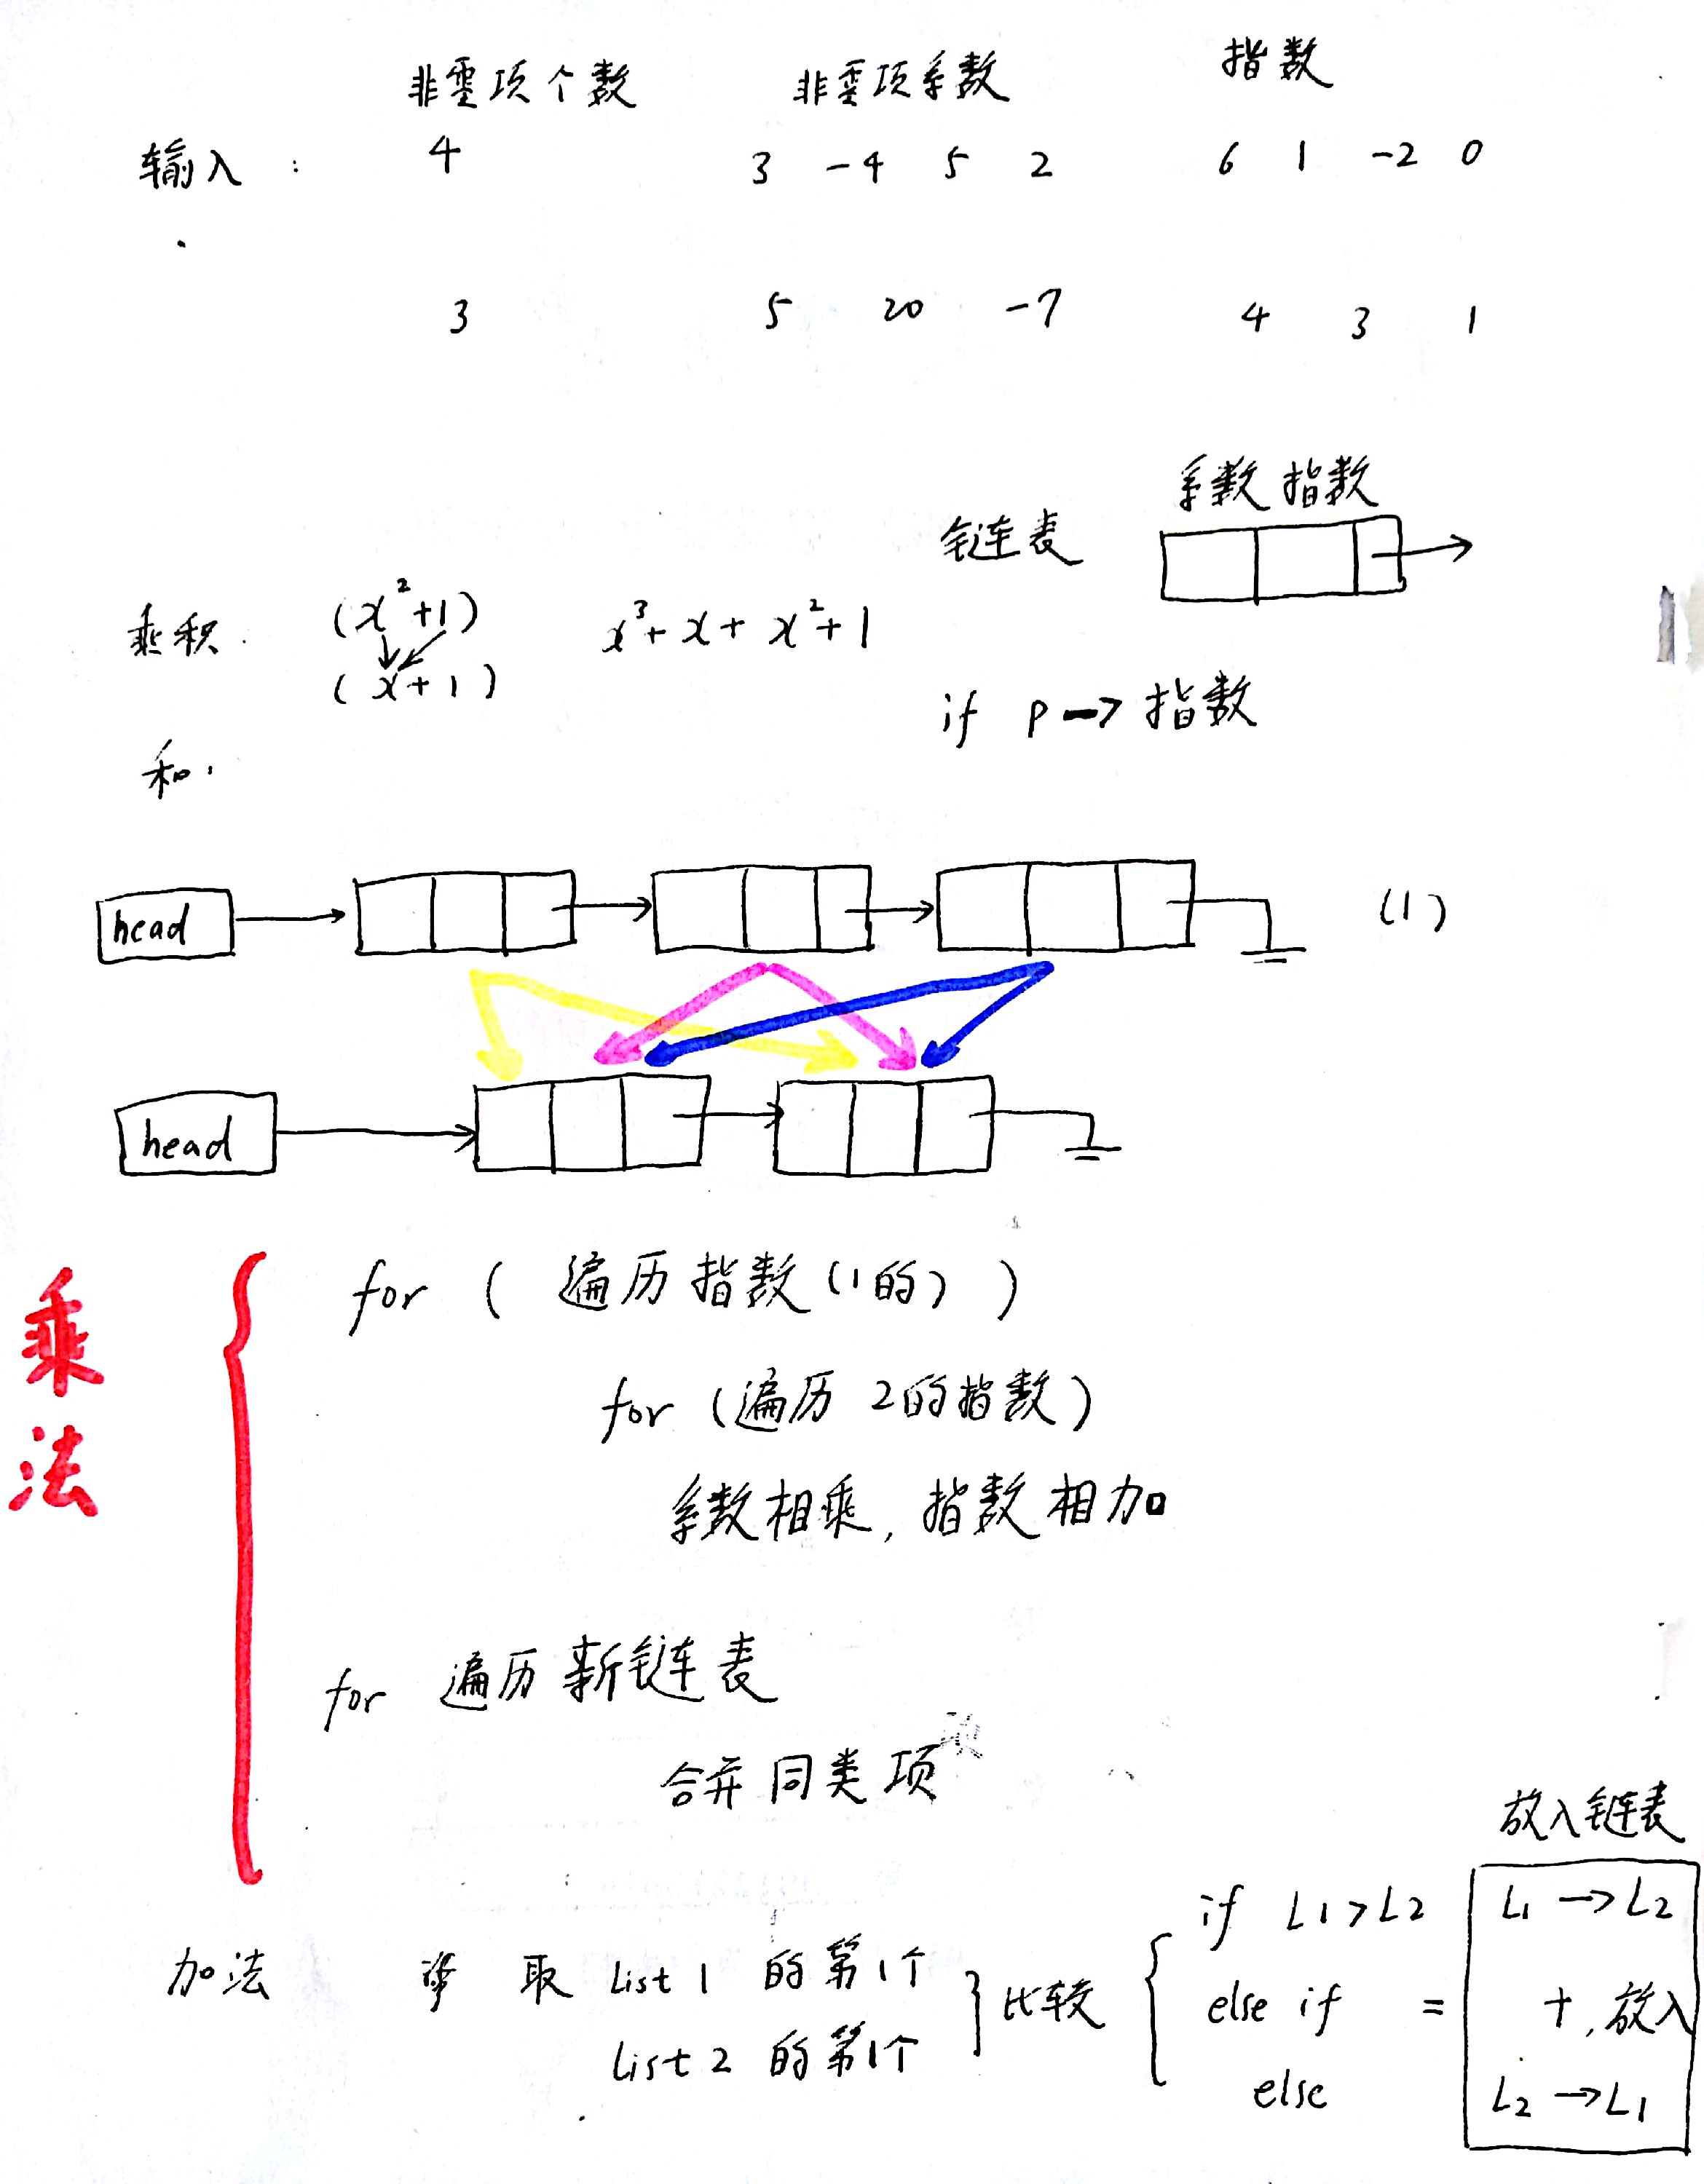 非零项个数 非零项系数 指数
输入 : 4 3 -4 5 2 6 1 -2 0
3 5 20 -7 4 3 1
系数 指数
链表
乘积. (x²+1) x³+x+x²+1
(x+1)
if p→指数
和.
head (1)
head
乘法
for ( 遍历指数(1的) )
for (遍历 2的指数)
系数相乘, 指数相加
for 遍历新链表
合并同类项
放入链表
if L1>L2 L1→L2
加法 取 List 1 的第1个 比较 else if = +, 放入
List 2 的第1个
else L2→L1